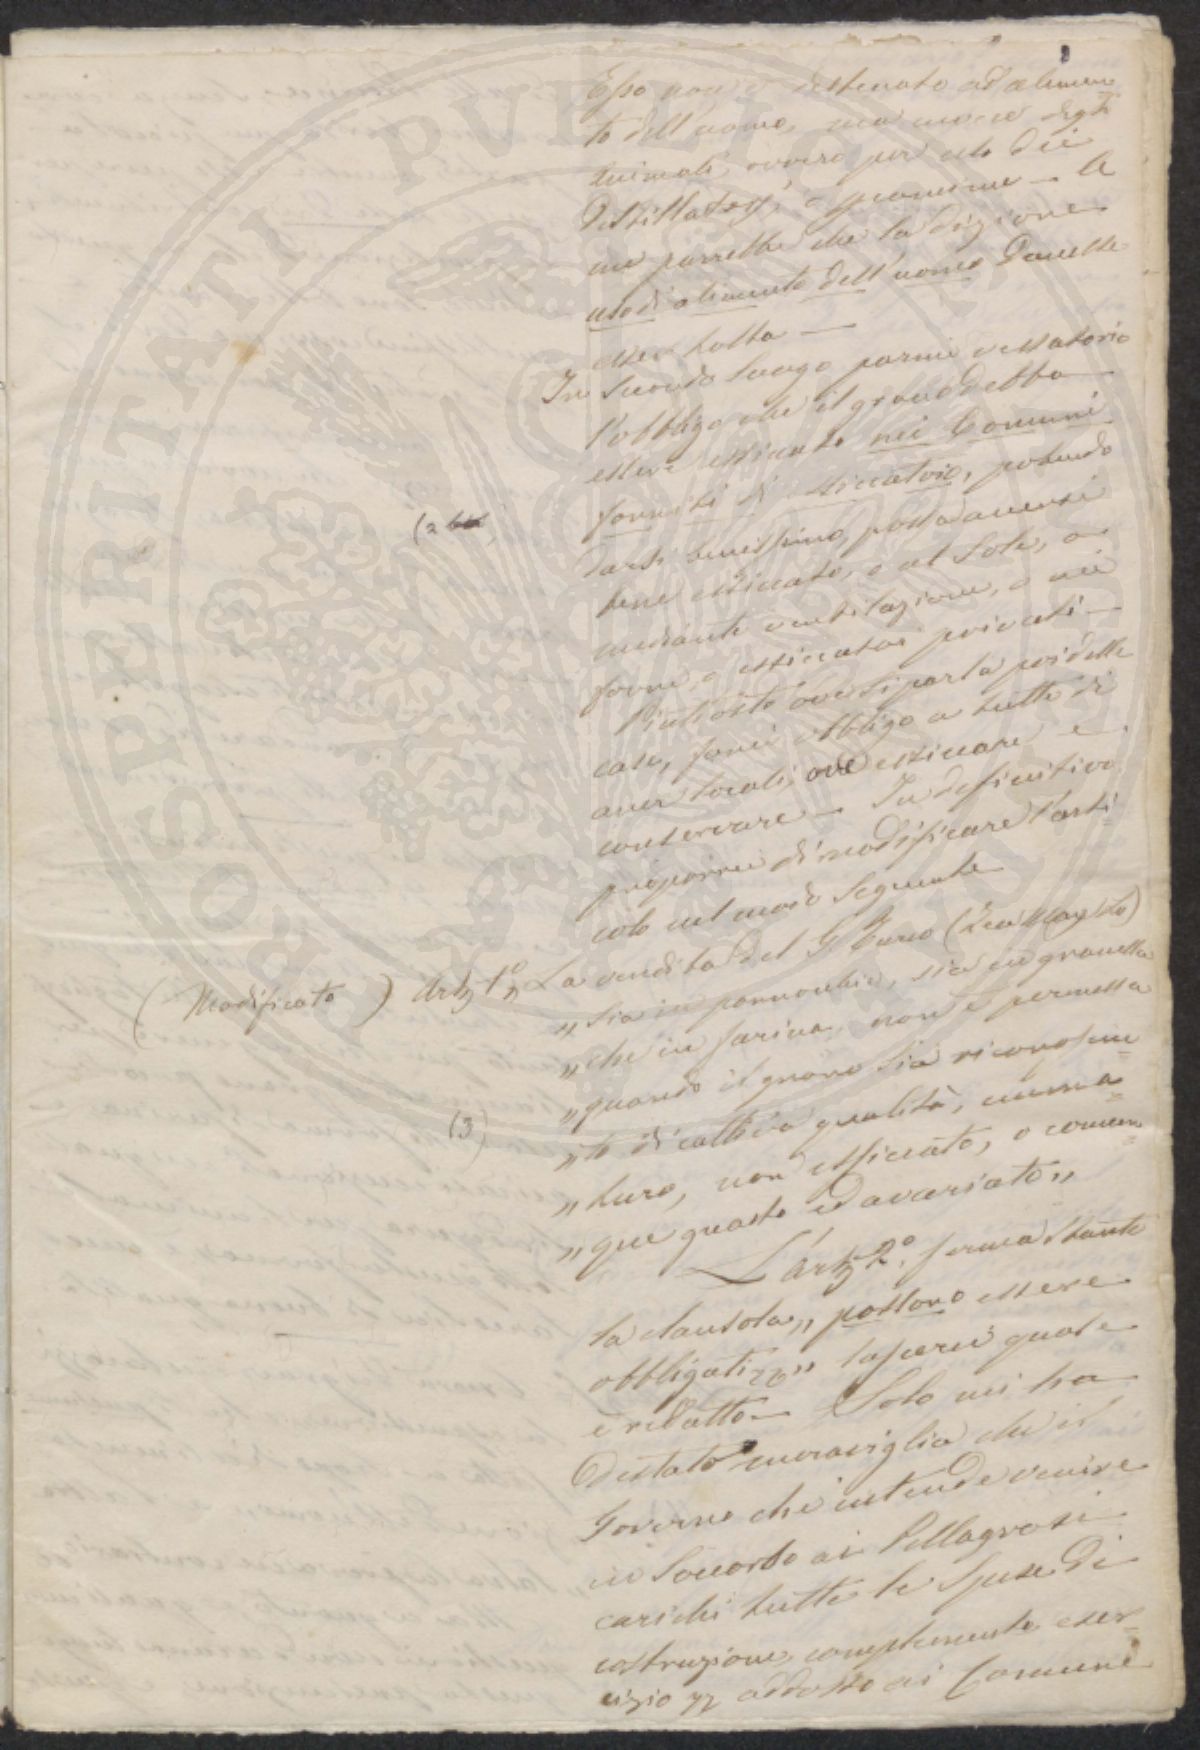 Esso non è destinato ad alimen
to dell'uomo, ma anche degli
animali, ovvero per uso dei
distillatori, e
me parrebbe che la dizione
uso di alimento dell'uomo dovesse
esser tolta —
In secondo luogo parmi vessatorio
l'obbligo che il grano debba
essere essiccato nei Comuni
forniti di essiccatoio, potendo
(2 bis)
darsi benissimo, possa aversi
bene essiccato, o al sole, o
mediante ventilazione, o nei
forni, o essiccatoi privati —
Piuttosto ove si parla poi delle
case, farei obbligo a tutti di
aver locali, ove essiccare e
conservare — In definitiva
proporrei di modificare l'arti
colo nel modo seguente
(Modificato) Art. 1° „ La vendita del G. Turco (Zea Mays L.)
„ sia in pannocchia, sia in granella
„ che in farina, non è permessa
„ quando il grano sia riconosciu=
(3)
„ to di cattiva qualità, imma=
„ turo, non essiccato, o comun=
„ que guasto ed avariato „
L'art. 2°, ferma stante
la clausola „ possono essere
obbligati „ lascerei quale
è redatto — Solo mi ha
destato meraviglia che il
Governo che intende venire
in soccorso ai Pellagrosi
carichi tutte le spese di
costruzione, complemento eser=
cizio addosso ai Comuni
PROSPERITATI PVBLICAE